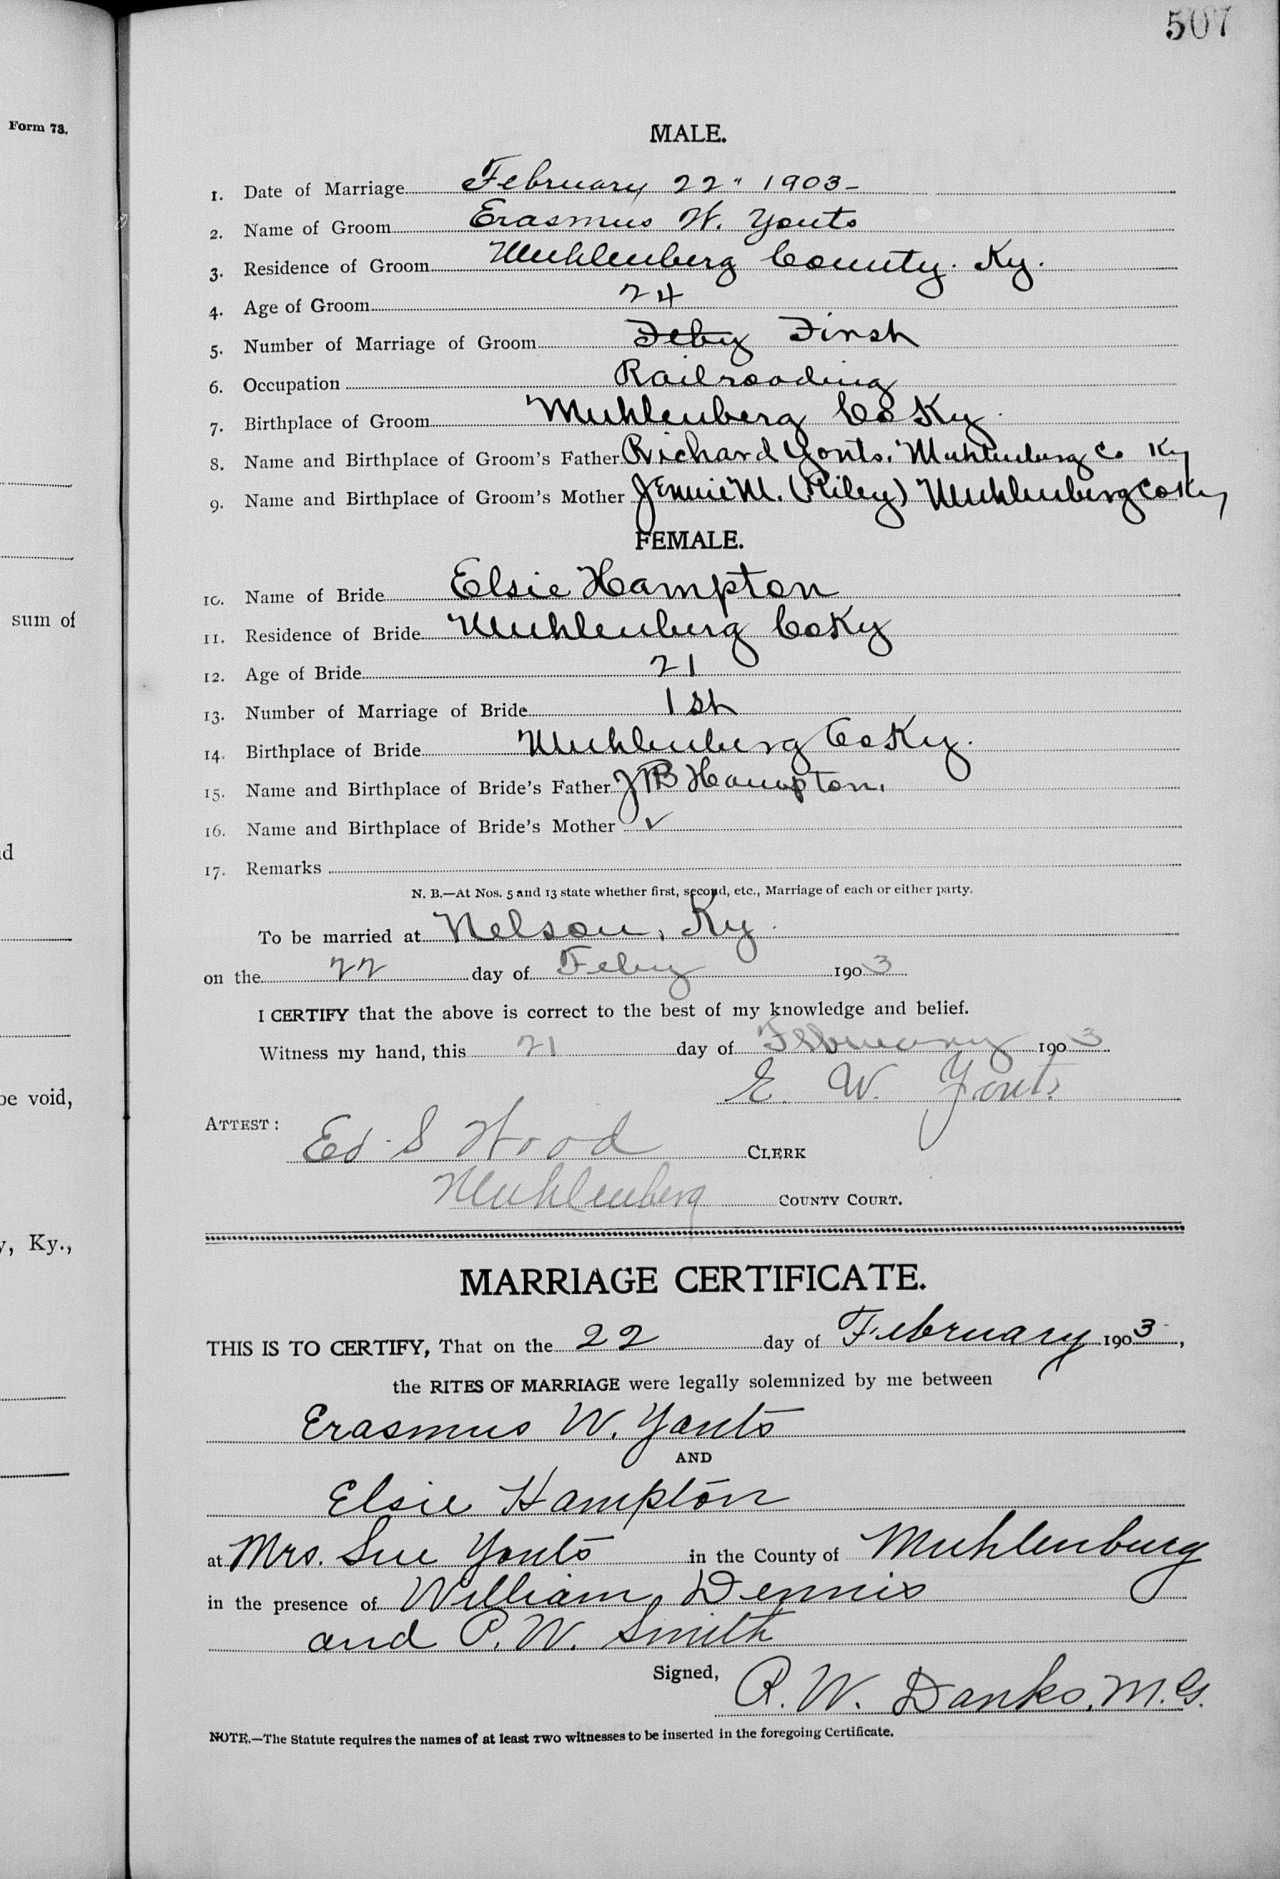 507
Form 73.
MALE.
1. Date of Marriage February 22" 1903-
2. Name of Groom Erasmus W. Yonts
3. Residence of Groom Muhlenberg County. Ky.
4. Age of Groom 24
5. Number of Marriage of Groom Feby First
6. Occupation Railroading
7. Birthplace of Groom Muhlenberg Co Ky.
8. Name and Birthplace of Groom's Father Richard Yonts. Muhlenburg Co Ky
9. Name and Birthplace of Groom's Mother Jennie M. (Riley) Muhlenburg Co Ky
FEMALE.
10. Name of Bride Elsie Hampton
11. Residence of Bride Muhlenburg Co Ky
sum of
12. Age of Bride 21
13. Number of Marriage of Bride 1st
14. Birthplace of Bride Muhlenburg Co Ky.
15. Name and Birthplace of Bride's Father Hampton.
16. Name and Birthplace of Bride's Mother ✓
17. Remarks
N. B.—At Nos. 5 and 13 state whether first, second, etc., Marriage of each or either party.
To be married at Nelson, Ky.
on the 22 day of Feby 1903
I CERTIFY that the above is correct to the best of my knowledge and belief.
Witness my hand, this 21 day of February 1903
be void,
E. W. Yonts
ATTEST:
Ed. S Wood CLERK
Muhlenberg COUNTY COURT.
y, Ky.,
MARRIAGE CERTIFICATE.
THIS IS TO CERTIFY, That on the 22 day of February 1903,
the RITES OF MARRIAGE were legally solemnized by me between
Erasmus W. Yonts
AND
Elsie Hampton
at Mrs. Sue Yonts in the County of Muhlenburg
in the presence of William Dennis
and P. W. Smith
Signed, R. W. Danks, M. G.
NOTE.—The Statute requires the names of at least TWO witnesses to be inserted in the foregoing Certificate.